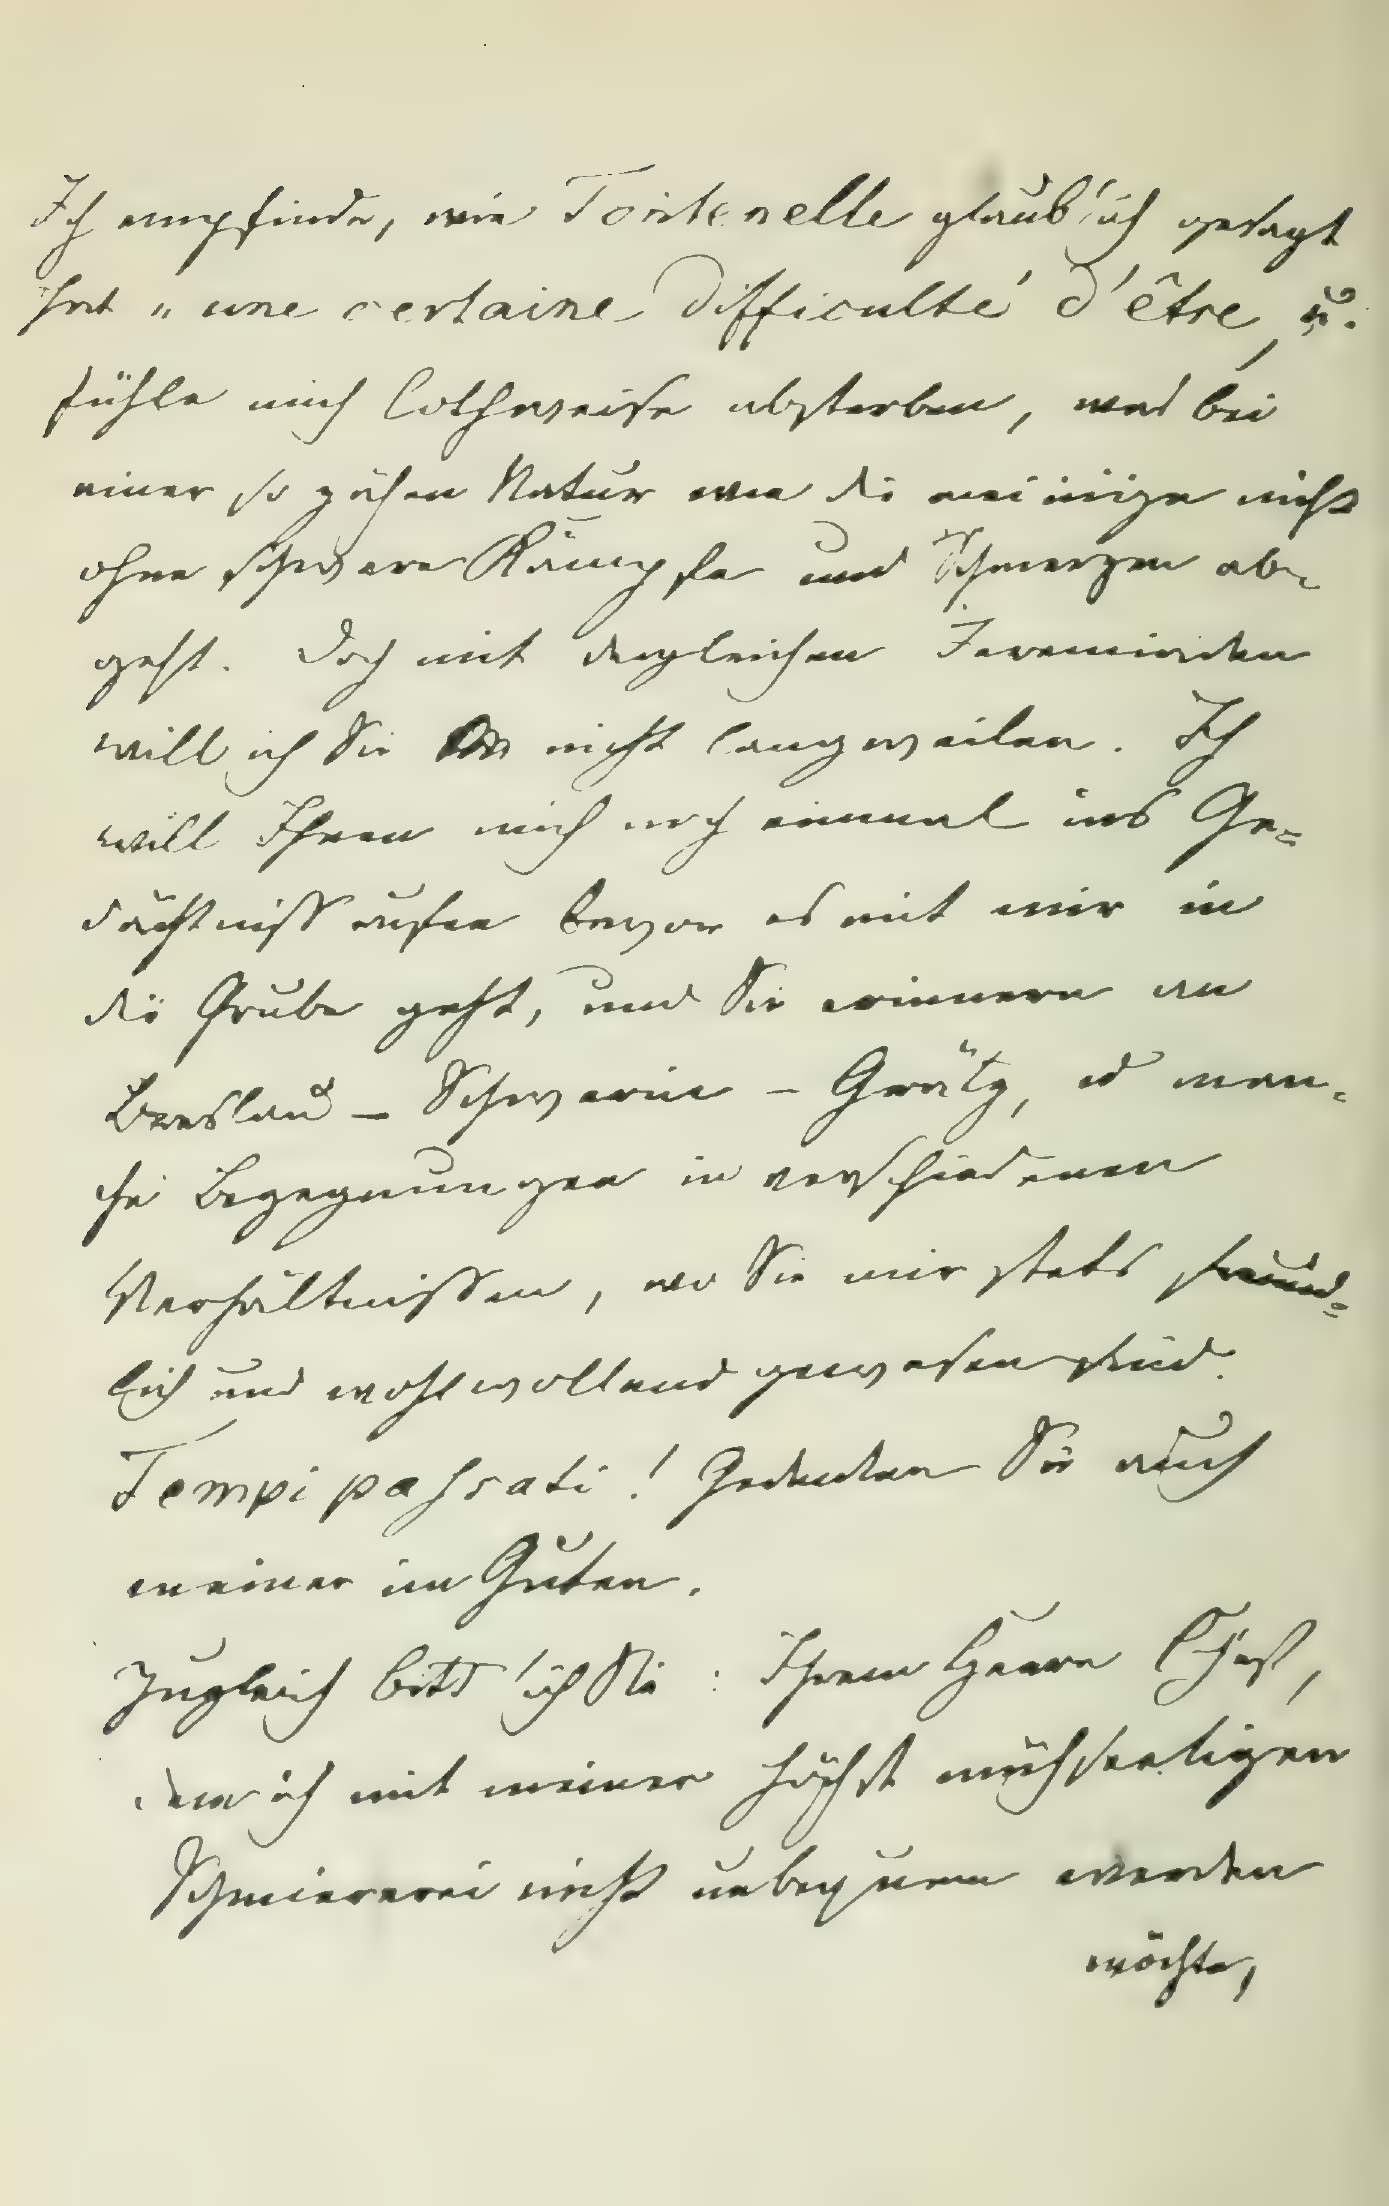 Ich empfinde, wie Fontenelle glaub' ich gesagt
hat „une certaine difficulté d'être, u.
fühle mich lothweise absterben, was bei
einer so zähen Natur wie die meinige nicht
ohne schwere Kämpfe und Schmerzen ab-
geht. Doch mit dergleichen Jeremiaden
will ich Sie nicht langweilen. Ich
will Ihnen mich noch einmal ins Ge=
dächtniss rufen bevor es mit mir in
die Grube geht, und Sie erinnern an
Breslau – Schwerin – Grätz, u man-
che Begegnungen in verschiedenen
Verhältnissen, wo Sie mir stets freund=
lich und wohlwollend gewesen sind.
Tempi passati! Gedenken Sie auch
meiner im Guten.
Zugleich bitt' ich Sie: Ihrem Herrn Chef,
dem ich mit meiner höchst mühseeligen
Schmiererei nicht unbequem werden
möchte,